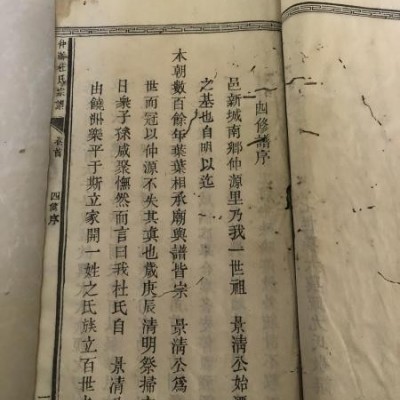 四修譜序
邑新城南鄉仲源里乃我一世祖 景清公始遷
之基也自明以迄
本朝數百餘年葉葉相承廟與譜皆宗 景清公爲
世而冠以仲源不失其眞也歲庚辰清明祭掃
日衆子孫咸聚憮然而言曰我杜氏自 景清
由饒洲樂平于斯立家開一姓之氏族立百世
仲源杜氏宗譜 卷首 四修序